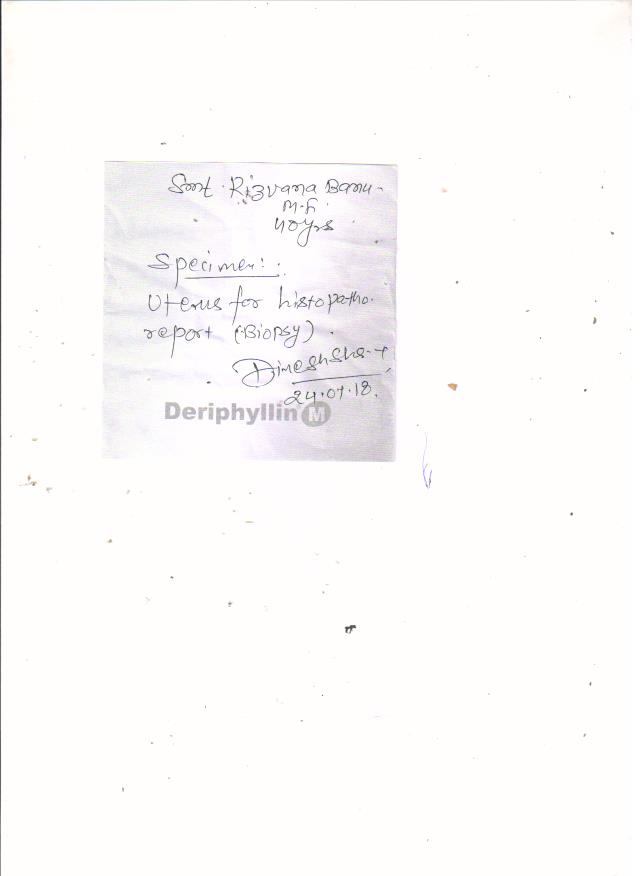 Smt. Rizvana Banu
M.F.
40yrs
Specimen:
Uterus for histopatho.
report (Biopsy).
24.07.18.
Deriphyllin M